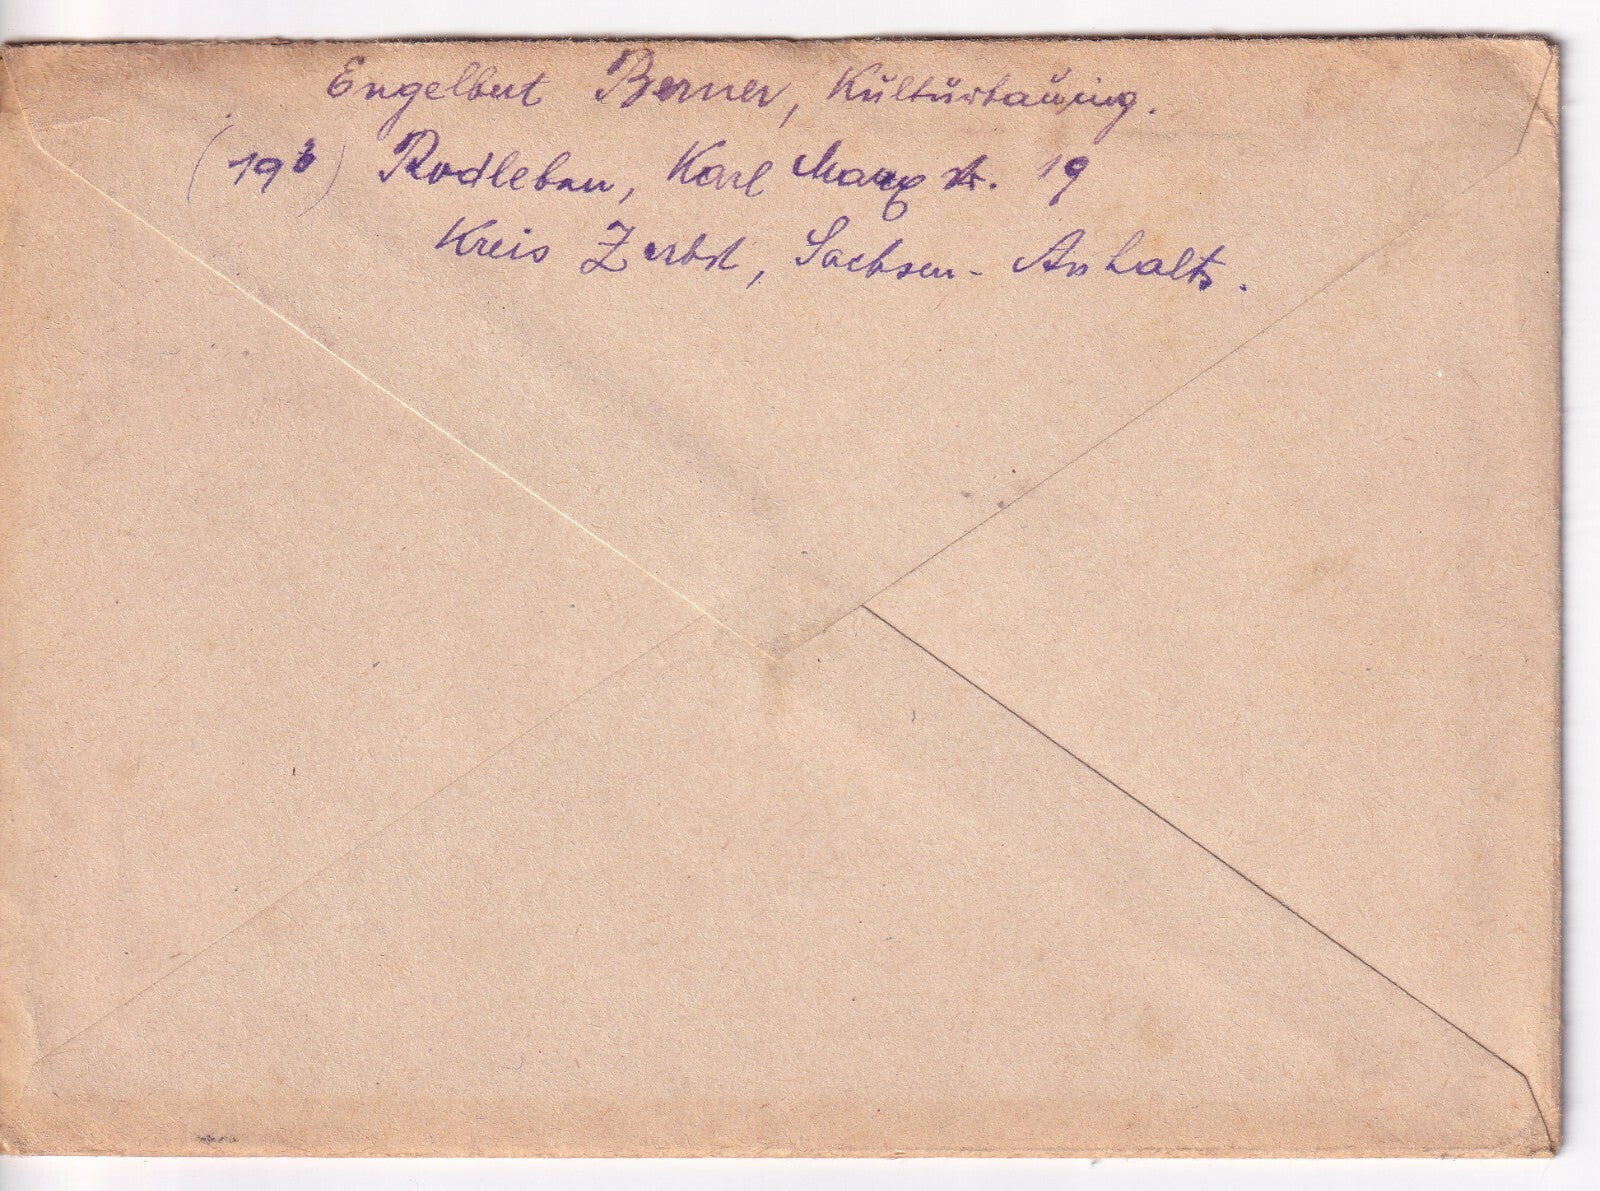 Engelbert Berner, Kulturbauing.
(19b) Rodleben, Karl Marx str. 19
Kreis Zerbst, Sachsen-Anhalt.